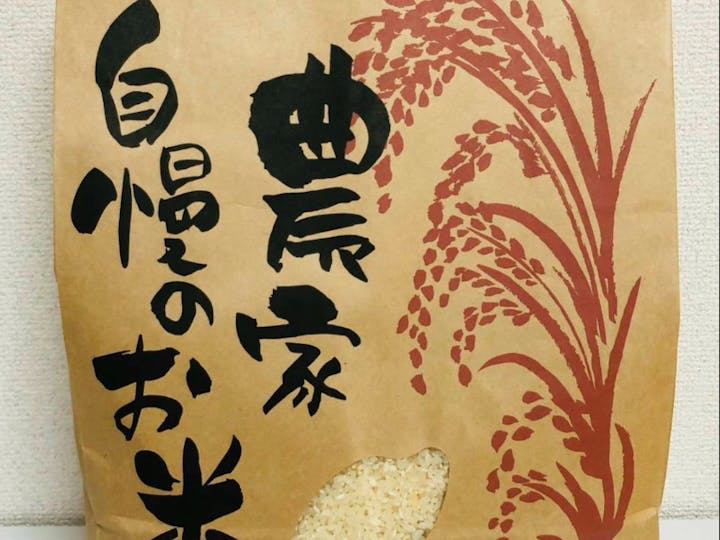 農家
自慢のお米